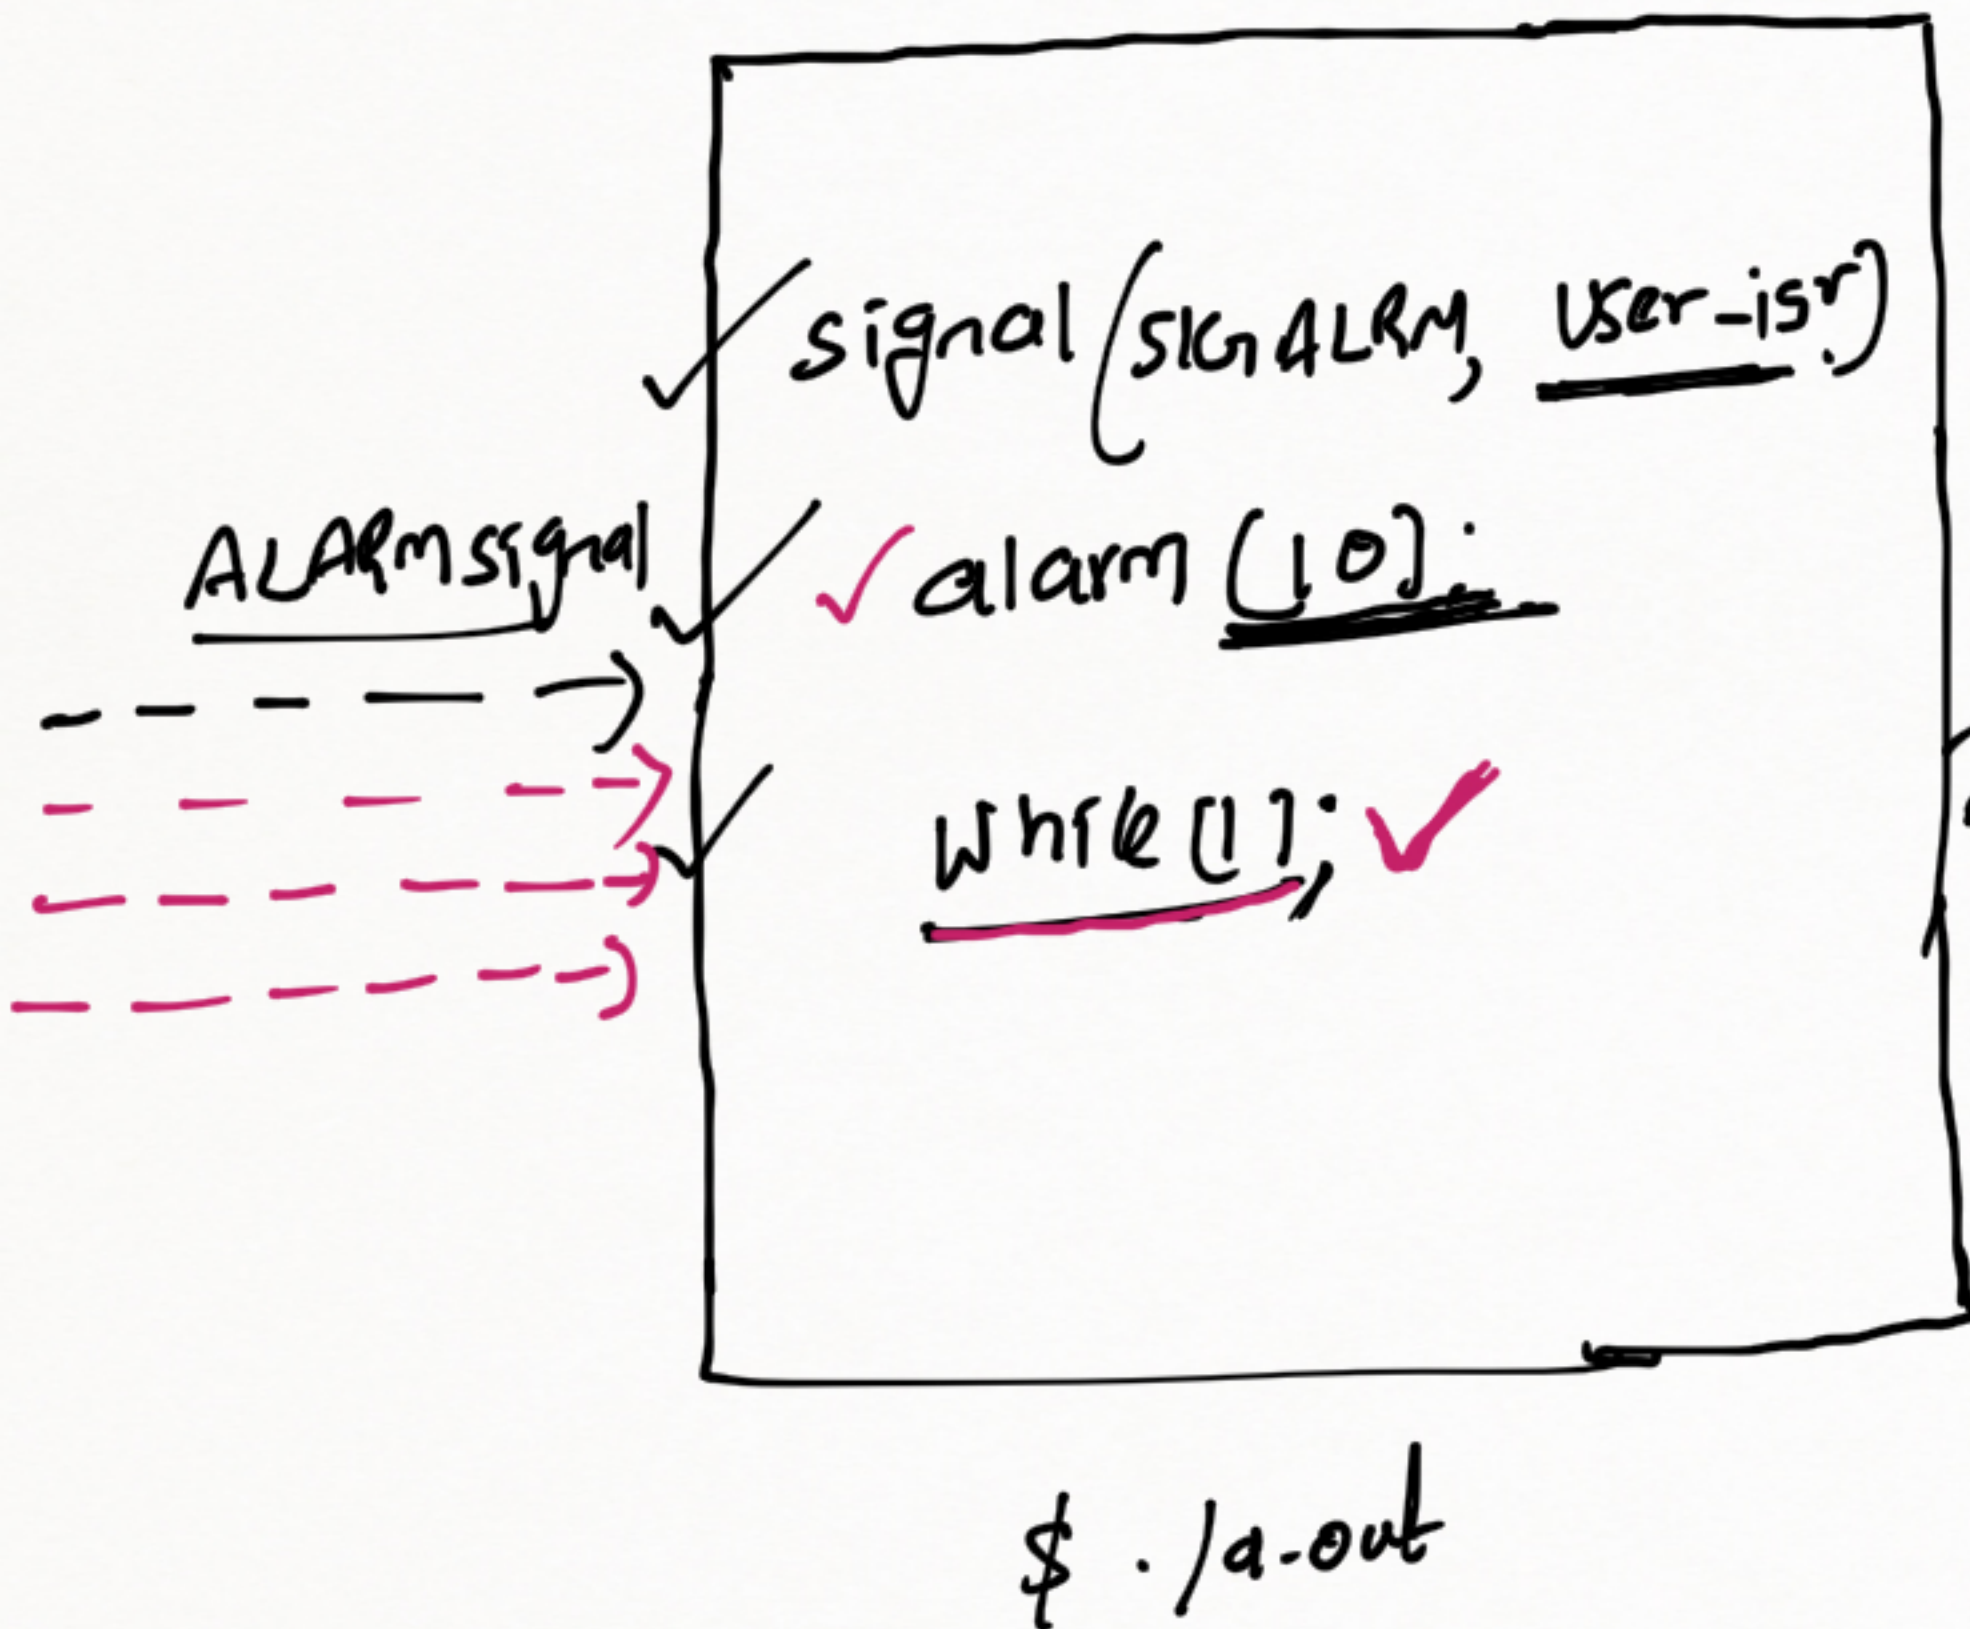 signal(SIGALRM, user_isr)
ALARM signal
alarm(10);
while(1);
$ ./a.out